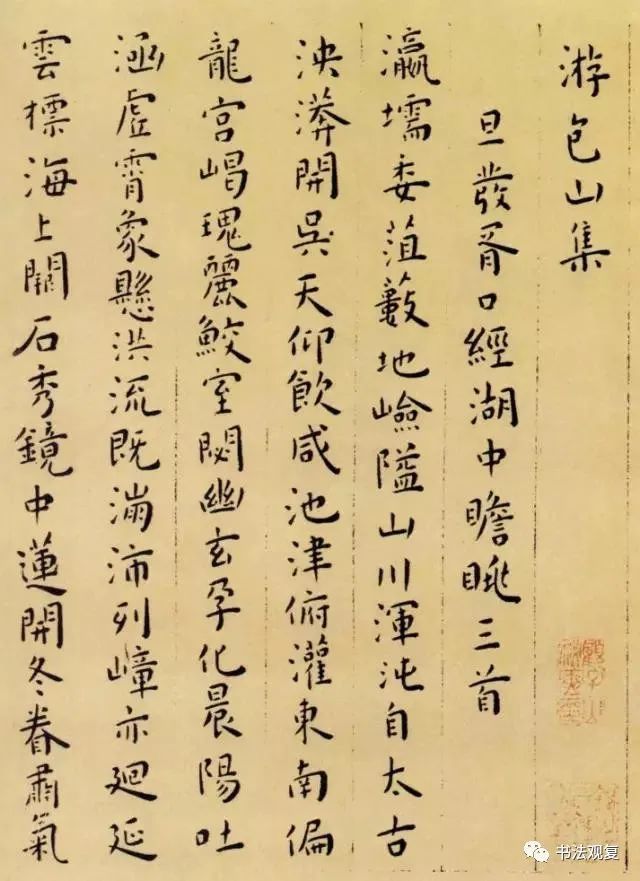 游包山集
旦發胥口經湖中瞻眺三首
瀛壖委菹藪地嶮隘山川渾沌自太古
泱漭開吳天仰飲咸池津俯灌東南偏
龍宮嵑瑰麗鮫室閟幽玄孕化晨陽吐
涵虛霄象懸洪流既滿沛列嶂亦廻延
雲標海上闕石秀鏡中蓮開冬眷肅氣
书法观复